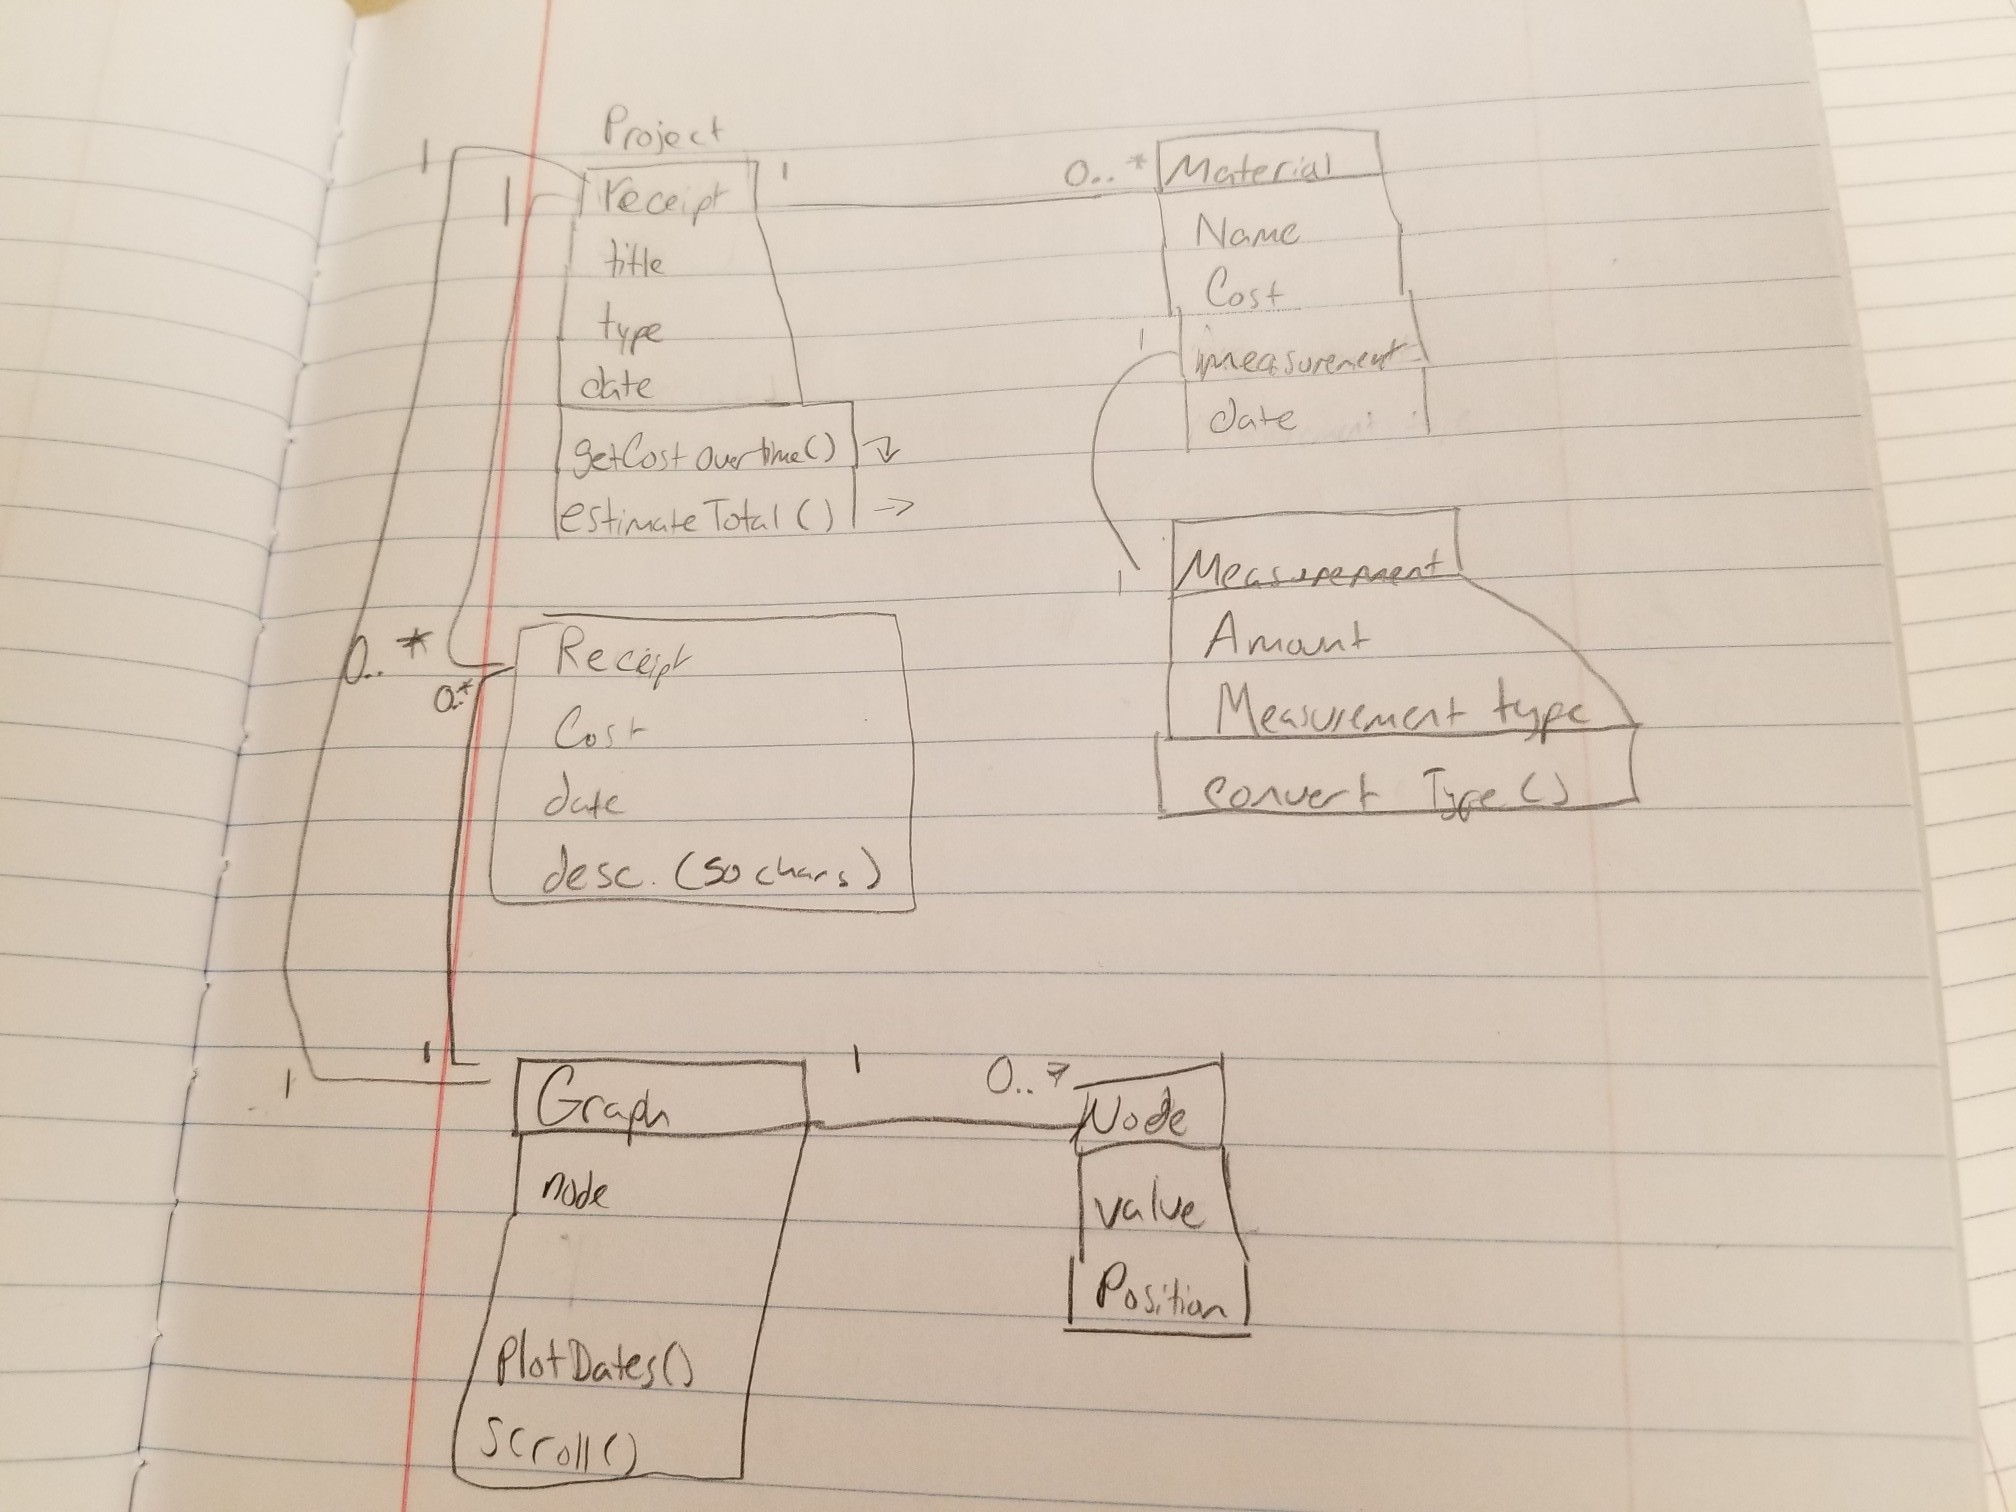 Project
1
1
receipt
title
type
date
getCost overtime()
estimateTotal ()
1
0..*
Material
Name
Cost
measurement
date
1
1
Measurement
Amount
Measurement type
convert Type()
0..*
0..*
Receipt
Cost
date
desc. (50 chars)
1
1
Graph
node
PlotDates()
scroll()
1
0..*
Node
value
Position